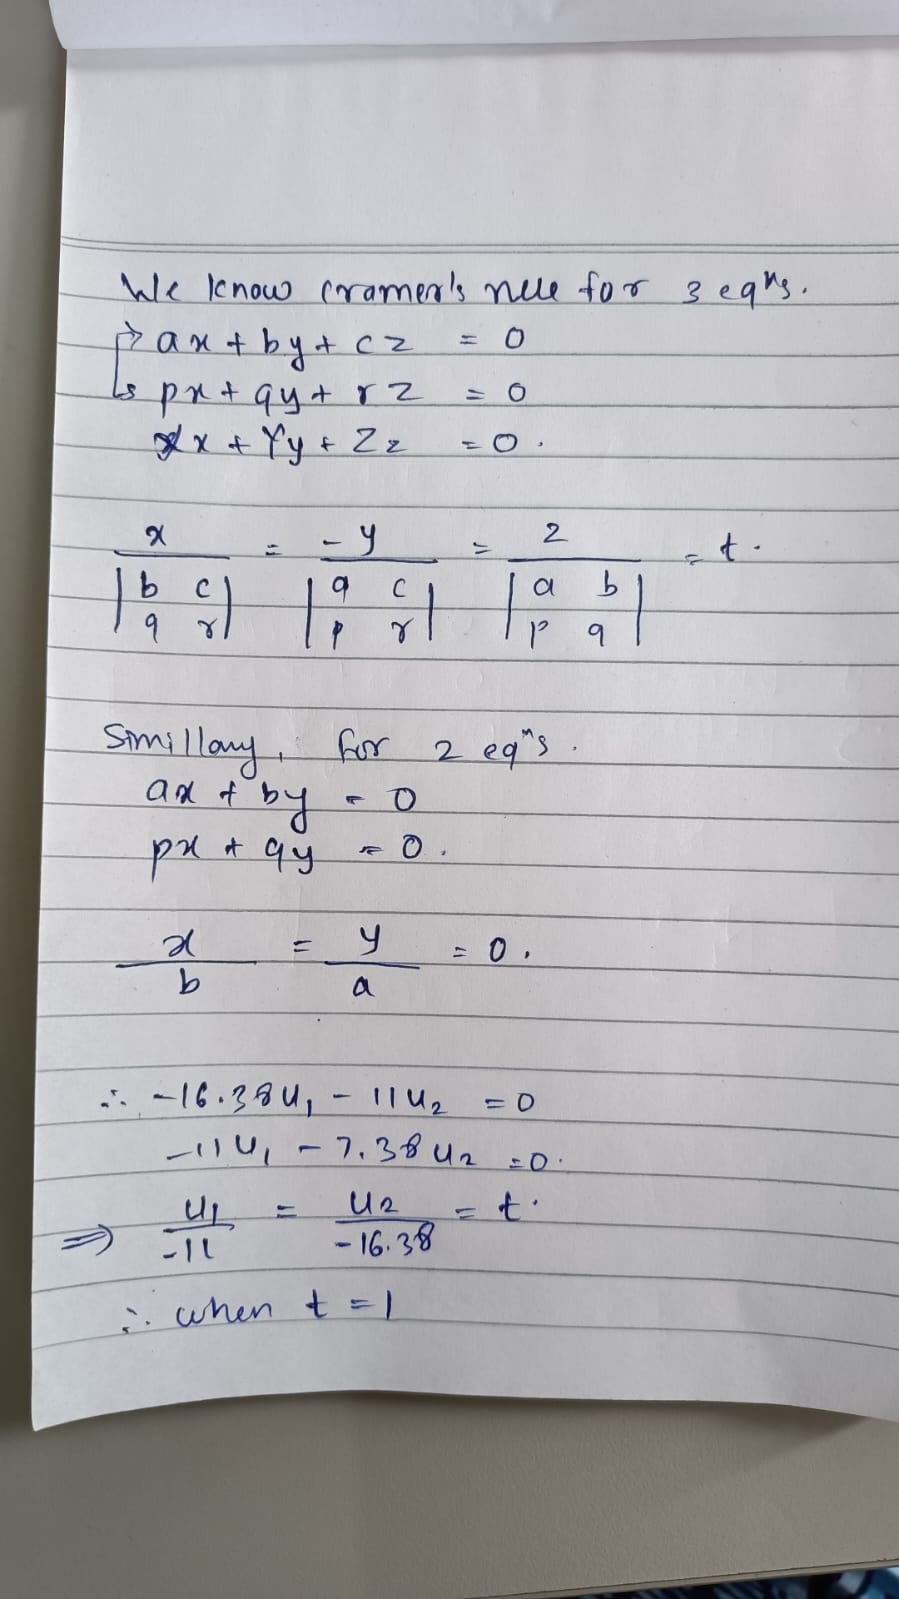 We know cramer's rule for 3 eqns.
ax + by + cz = 0
px + qy + rz = 0
x + Yy + Zz = 0.
x = -y = z = t.
|b c| |a c| |a b|
|q r| |p r| |p q|
Simillary, for 2 eqns.
ax + by = 0
px + qy = 0.
x = y = 0.
b a
∴ -16.38u₁ - 11u₂ = 0
-11u₁ - 7.38u₂ = 0.
⇒ u₁ = u₂ = t.
-11 -16.38
∴ when t = 1